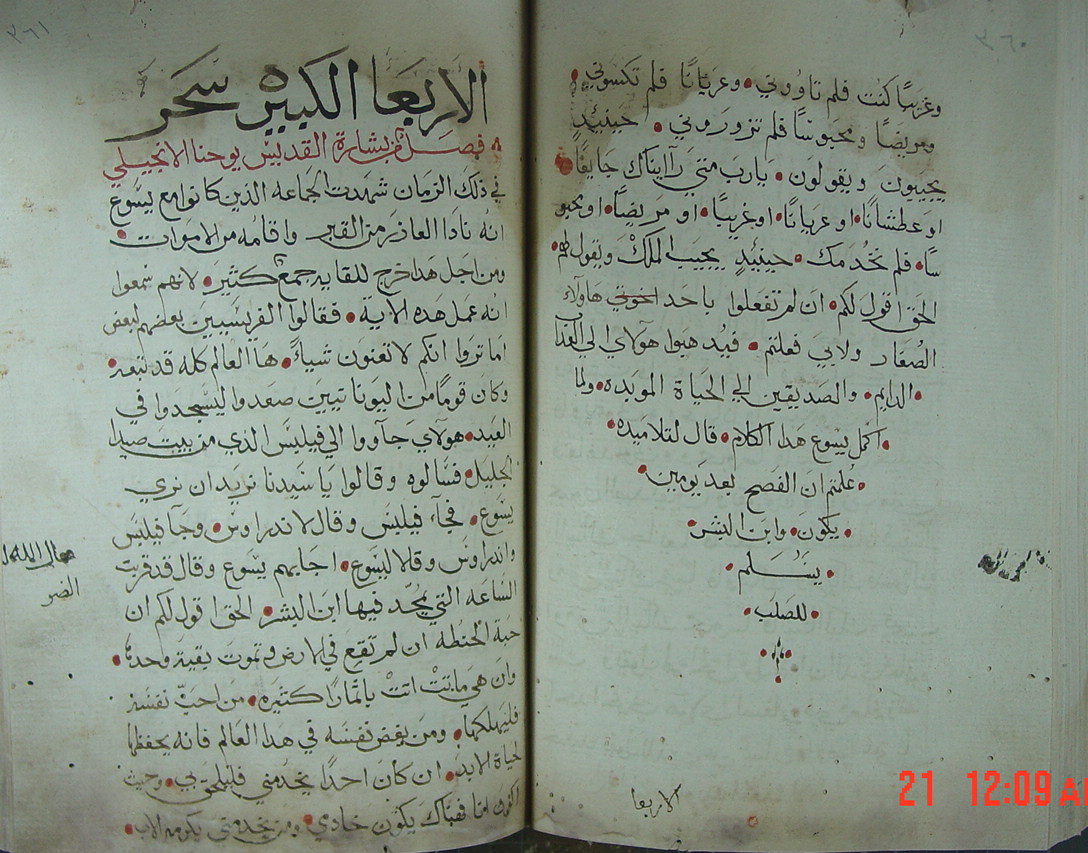 ٣٦٠
وغريبًا كنت فلم تاووني • وعريانًا فلم تكسوني
ومريضًا ومحبوسًا فلم تزوروني • حينيذٍ
يجيبون ويقولون • يارب متى راايناك جايعًا
او عطشانًا • او عريانًا • اوغريبًا • او مريضًا • او محبو
سًا • فلم نخدمك • حينيذٍ يجيب الملك ويقول لهم
الحق اقول لكم • ان لم تفعلوا باحد اخوتي هاولاء
الصغار ولابي فعلتم • فيدهبوا هولاي الي العذا
• الدايم • والصديقين الي الحياة الموبده • ولما
• اكمل يسوع هدا الكلام • قال لتلاميده •
• علمتم ان الفصح بعد يومين •
• يكون • وابن البشر •
• يسلم •
• للصلب •
الاربعا
٣٦١
الأربعا الكبيره سحر
فصل من بشارة القديس يوحنا الانجيلي
في ذلك الزمان شهدت الجماعه الذين كانوا مع يسوع
انه نادا العاذر من القبر واقامه من الاموات •
ومن اجل هدا خرج للقايه جمع كثير • لانهم سمعوا
انه عمل هده الاية • فقالوا الفريسيين بعضهم لبعض
اما تروا انكم لا تغنون شياء • ها العالم كله قد تبعه
وكان قومًا من اليونانيين صعدوا ليسجدوا في
العيد • هولاي جاووا الي فيلبس الذي من بيت صيدا
الجليل • فسالوه وقالوا يا سيدنا نريد ان نري
يسوع • فجاء فيلبس وقال لاندراوس • وجا فيلبس
واندراوس وقالا ليسوع • اجابهم يسوع وقال قد قربت
الساعه التي يمجد فيها ابن البشر • الحق اقول لكم ان
حبة الحنطه ان لم تقع في الارض وتموت بقية وحدها •
وان هي ماتت اتت باتمار كثيره • من احب نفسه
فليهلكها • ومن يغض نفسه في هدا العالم فانه يحفظها
لحياة الابد • ان كان احدًا يخدمني فليلحق بي • وحيث
اكون انا فهناك يكون خادمي • ومن يخدمني يكرمه الاب •
21 12:09 AM